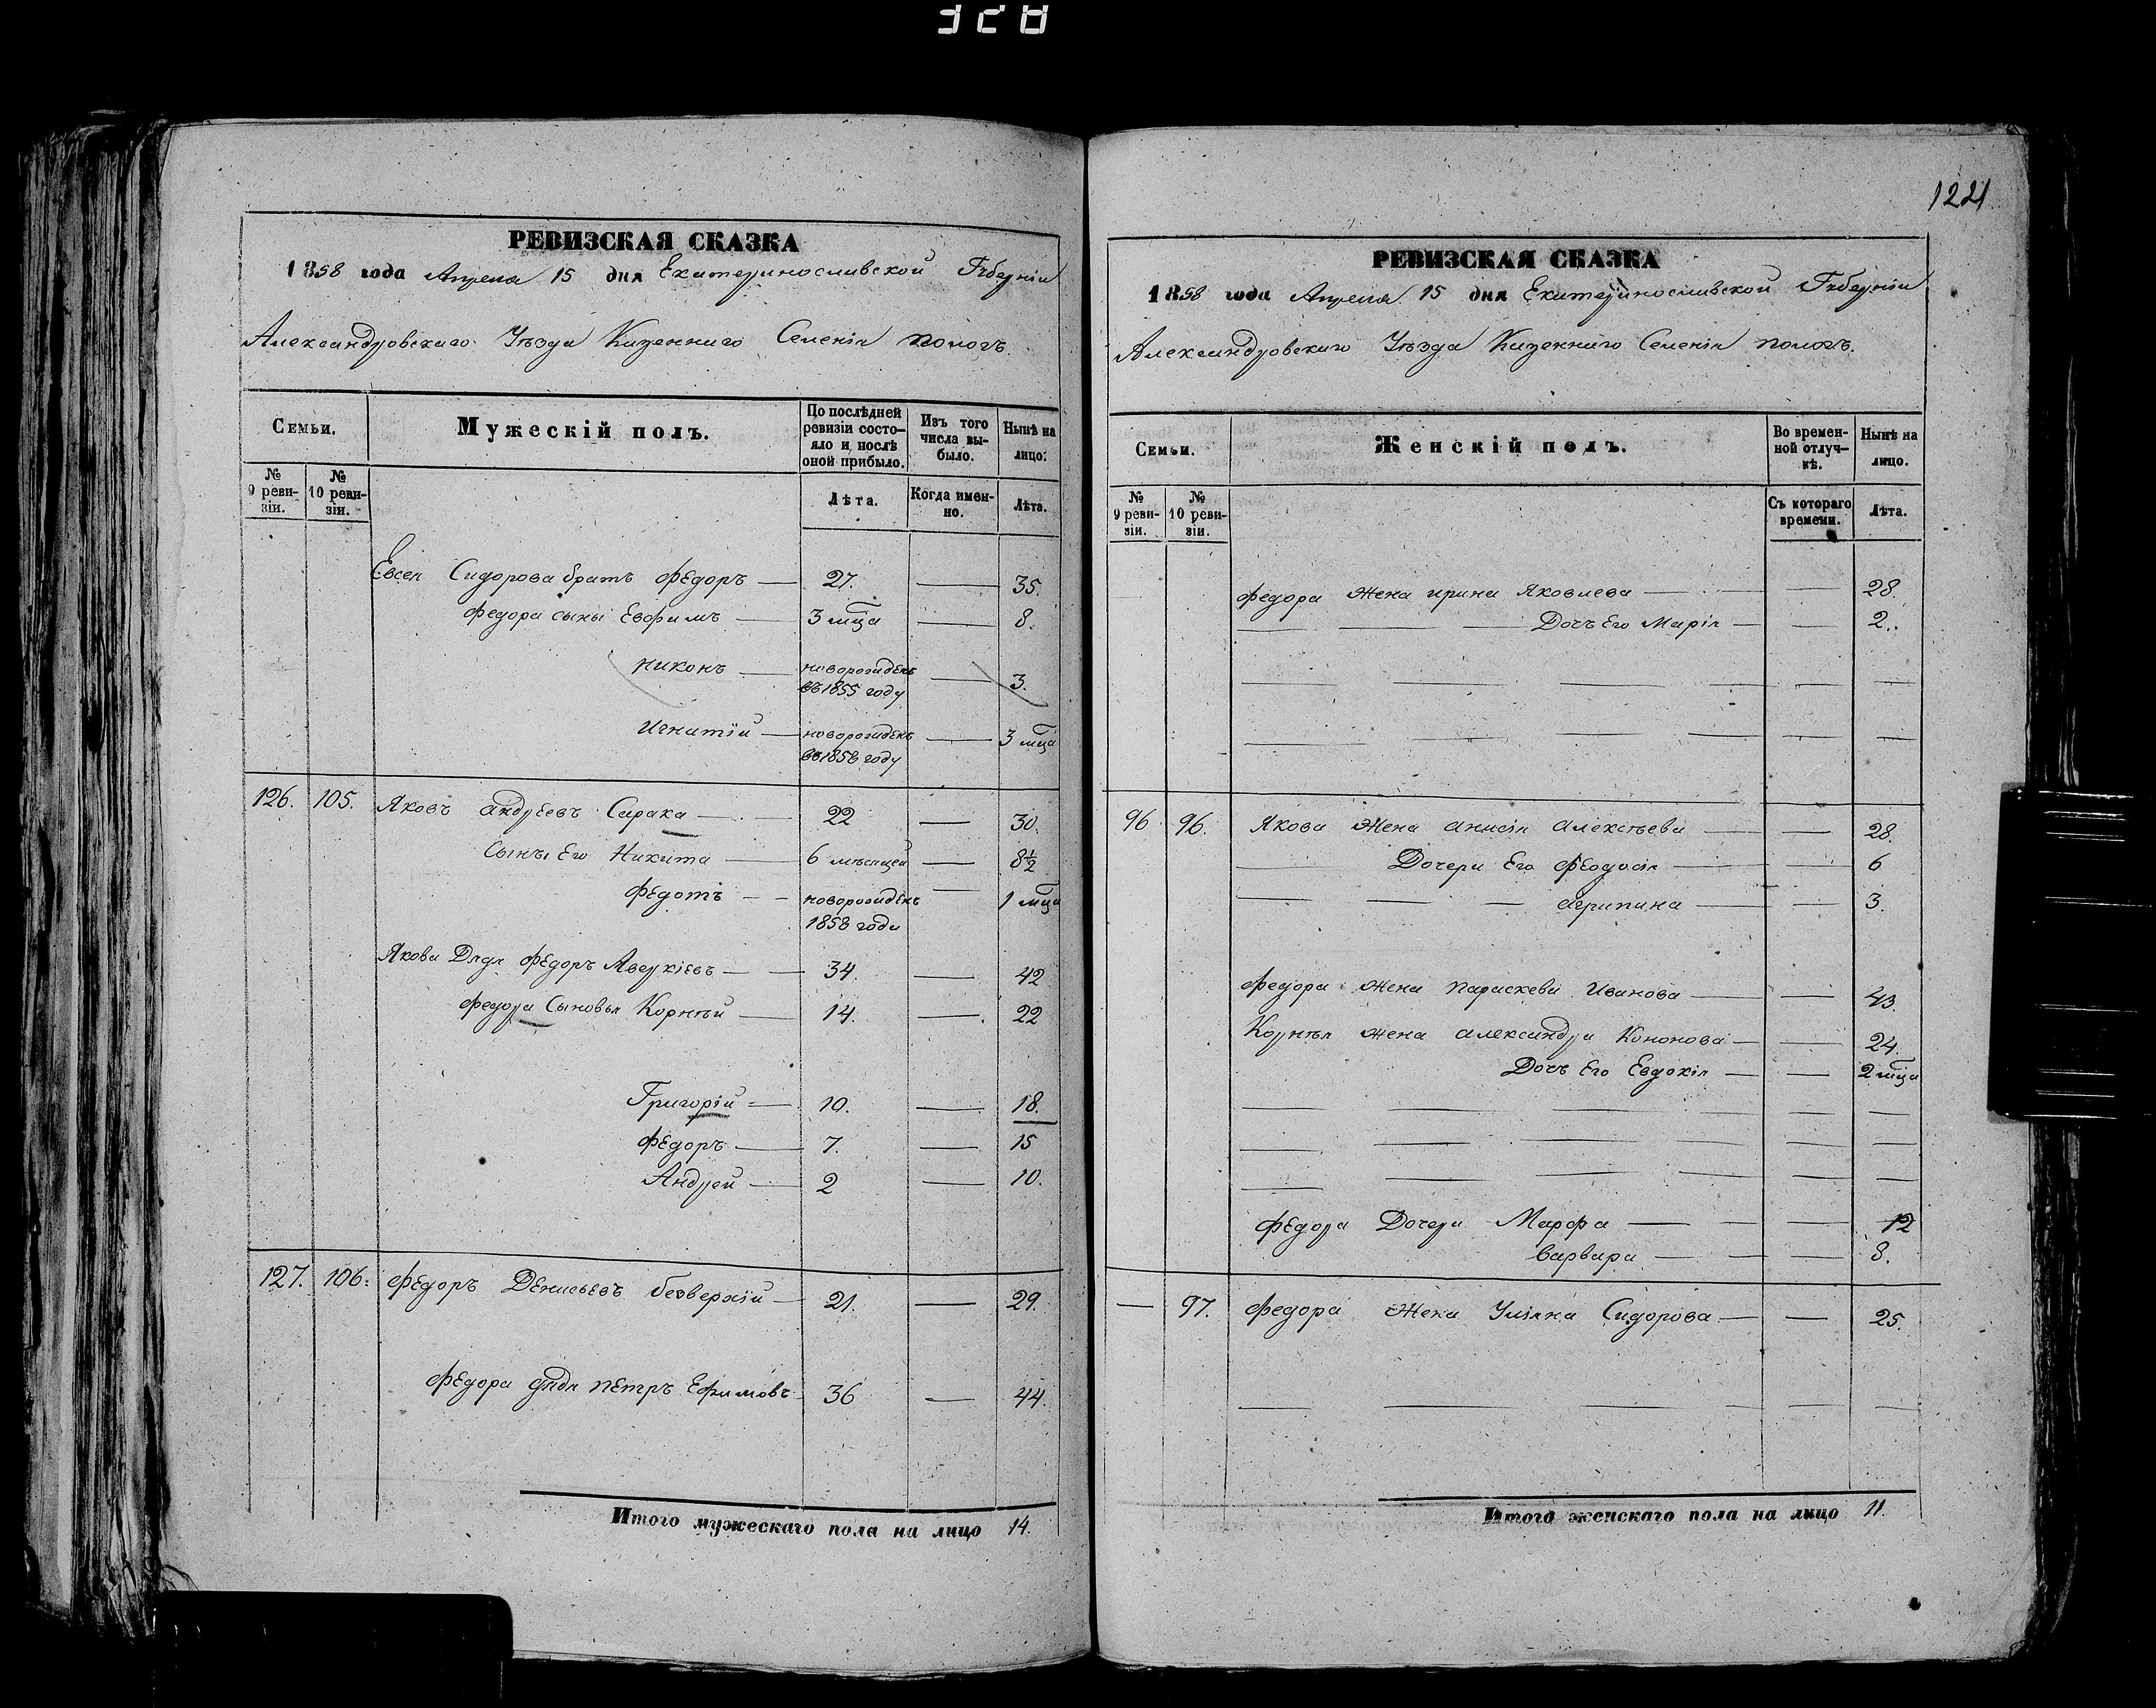 328
РЕВИЗСКАЯ СКАЗКА
1858 года Апреля 15 дня Екатеринославской Губерніи
Александровскаго Уѣзда Казеннаго Селенія пологъ.
Семьи.
Мужескій полъ.
По послѣдней ревизіи состояло и послѣ оной прибыло.
Изъ того числа выбыло.
Нынѣ на лицо.
№ 9 ревизіи.
№ 10 ревизіи.
Лѣта.
Когда именно.
Лѣта.
Евсея Сидорова братъ Федоръ — 27. — 35.
Федора сыны Евфимъ — 3 мца — 8.
Никонъ — новорожденъ въ 1855 году — 3.
Игнатій — новорожденъ въ 1858 году — 3 мца
126. 105. Яковъ Андреевъ Сирака — 22 — 30.
Сыны Его Никита — 6 мѣсяцей — 8½
Федотъ — новорожденъ 1858 года — 1 мца
Якова Дядя Федоръ Аверкіевъ — 34. — 42
Федора Сыновья Корнѣй — 14. — 22
Григорій — 10. — 18.
Федоръ — 7. — 15
Андрей — 2 — 10.
127. 106. Федоръ Денисьевъ безверхій — 21. — 29.
Федора дядя Петръ Ефимовъ 36 — 44.
Итого мужескаго пола на лицо 14.
1221
РЕВИЗСКАЯ СКАЗКА
1858 года Апреля 15 дня Екатеринославской Губерніи
Александровскаго Уѣзда Казеннаго Селенія пологъ.
Семьи.
Женскій полъ.
Во временной отлучкѣ.
Нынѣ на лицо.
№ 9 ревизіи.
№ 10 ревизіи.
Съ котораго времени.
Лѣта.
Федора Жена Ирина Яковлева — — 28.
Дочь Его Марія — — 2.
96 96. Якова Жена Анисія Алексѣева — — 28.
Дочери Его Феодосія — — 6
Агрипина — — 3.
Федора Жена Параскева Иванова — — 43.
Корнѣя Жена Александра Кононова — — 24.
Дочь Его Евдокія — — 2 мца
Федора Дочери Марфа — — 12
Варвара — — 8.
— 97. Федора Жена Уліяна Сидорова — — 25.
Итого женскаго пола на лицо 11.